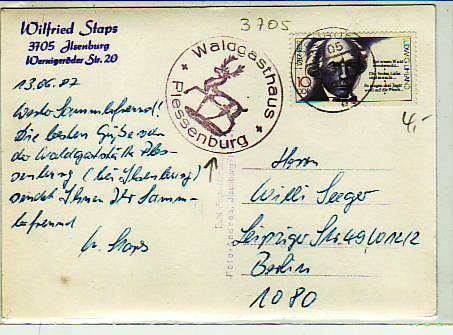 Wilfried Staps
3705 Ilsenburg
Wernigeröder Str. 20
13.06.87
Werter Sammlerfreund!
Die besten Grüße von
der Waldgaststätte Ples-
senburg (bei Ilsenburg)
sendet Ihnen Ihr Samm-
lerfreund
W. Staps
3705
Waldgasthaus
Plessenburg
10
4,-
Herrn
Willi Seeger
Leipziger Str. 49/0 12/2
Berlin
1080